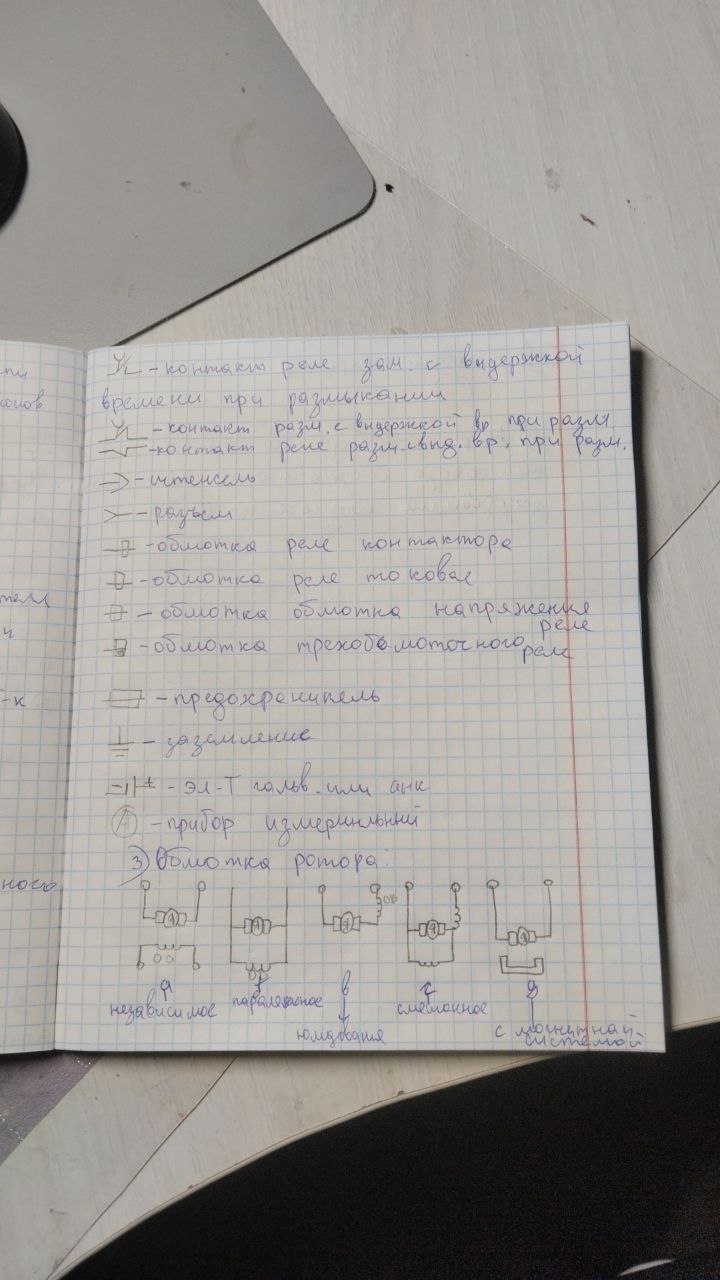 - контакт реле зам. с выдержкой
времени при размыкании
- контакт разм. с выдержкой вр при разм.
- контакт реле разм. выд. вр. при разм.
- штепсель
- разъем
- обмотка реле контактора
- обмотка реле токовое
- обмотка обмотка напряжения
реле
- обмотка трехобмоточного реле
- предохранитель
- заземление
- эл-т гальв. или
А - прибор
3) Обмотка ротора:
ОВ
Я Я Я Я Я
ОВ
а в г д
независимое паралельное смешанное
с магнитной
системой
ового
-к
ного